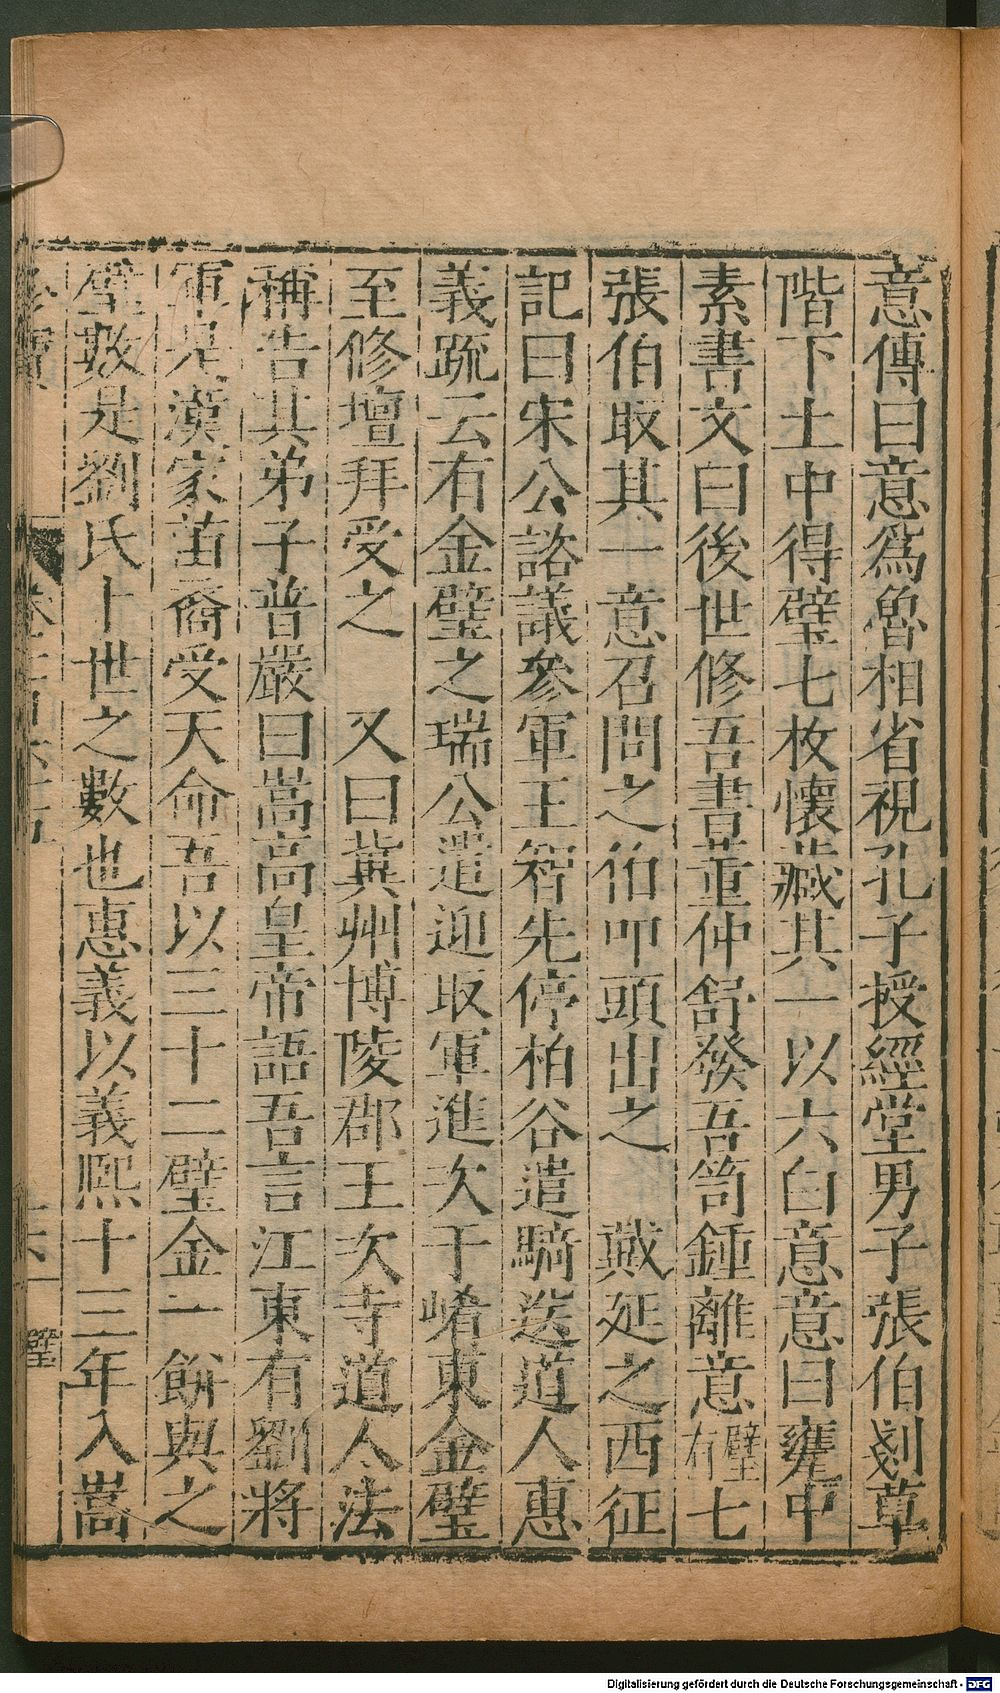 意傳曰意爲魯相省視孔子授經堂男子張伯剗草
階下土中得璧七枚懷藏其一以六白意意曰甕中
素書文曰後世修吾書董仲舒發吾笥鍾離意有璧七
張伯取其一意召問之伯叩頭出之　戴延之西征
記曰宋公諮議參軍王智先停柏谷遣騎送道人惠
義疏云有金璧之瑞公遣迎取軍進次于崤東金璧
至修壇拜受之　又曰冀州博陵郡王次寺道人法
稱告其弟子普嚴曰嵩高皇帝語吾言江東有劉將
軍是漢家苖裔受天命吾以三十二璧金一餅與之
璧數是劉氏卜世之數也惠義以義熙十三年入嵩
璧
Digitalisierung gefördert durch die Deutsche Forschungsgemeinschaft - DFG